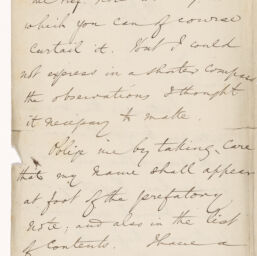 which you can of course
curtail it. But I could
not express in a shorter compass
the observations I thought
it necessary to make.
Oblige me by taking care
that my name shall appear
at foot of the prefatory
note; and also in the list
of Contents. I have a